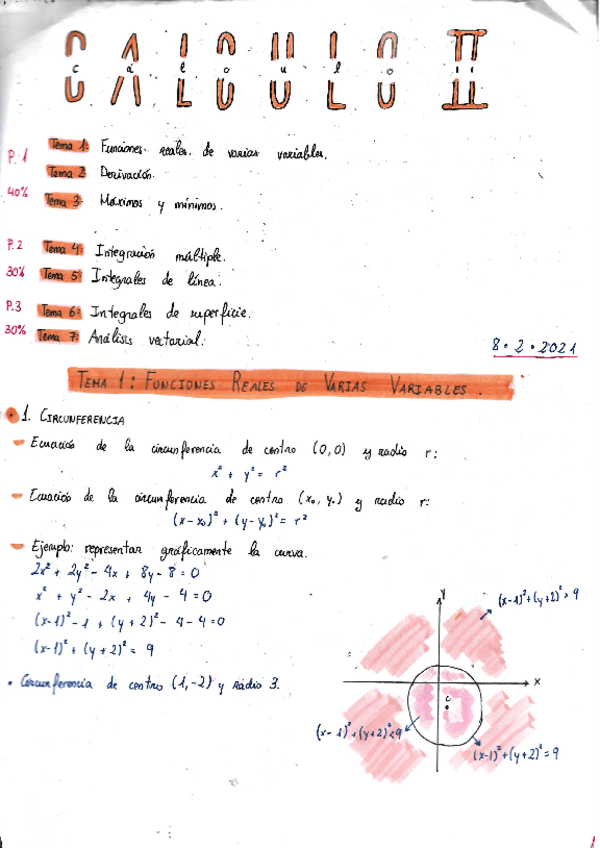 CALCULO II
c á l c u l o I I
P.1
Tema 1: Funciones reales de varias variables.
Tema 2: Derivación.
40%
Tema 3: Máximos y mínimos.
P.2
Tema 4: Integración múltiple.
30%
Tema 5: Integrales de línea.
P.3
Tema 6: Integrales de superficie.
30%
Tema 7: Análisis vectorial.
8·2·2021
TEMA 1: FUNCIONES REALES DE VARIAS VARIABLES.
1. CIRCUNFERENCIA
Ecuación de la circunferencia de centro (0,0) y radio r:
x² + y² = r²
Ecuación de la circunferencia de centro (x₀, y₀) y radio r:
(x-x₀)² + (y-y₀)² = r²
Ejemplo: representar gráficamente la curva.
2x² + 2y² - 4x + 8y - 8 = 0
x² + y² - 2x + 4y - 4 = 0
(x-1)² - 1 + (y+2)² - 4 - 4 = 0
(x-1)² + (y+2)² = 9
• Circunferencia de centro (1,-2) y radio 3.
y
(x-1)²+(y+2)²>9
x
c
(x-1)²+(y+2)²<9
(x-1)²+(y+2)²=9